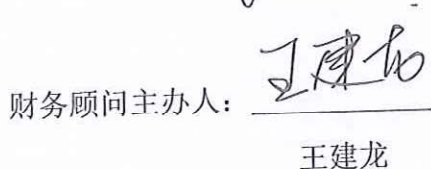 财务顾问主办人：王建龙
王建龙